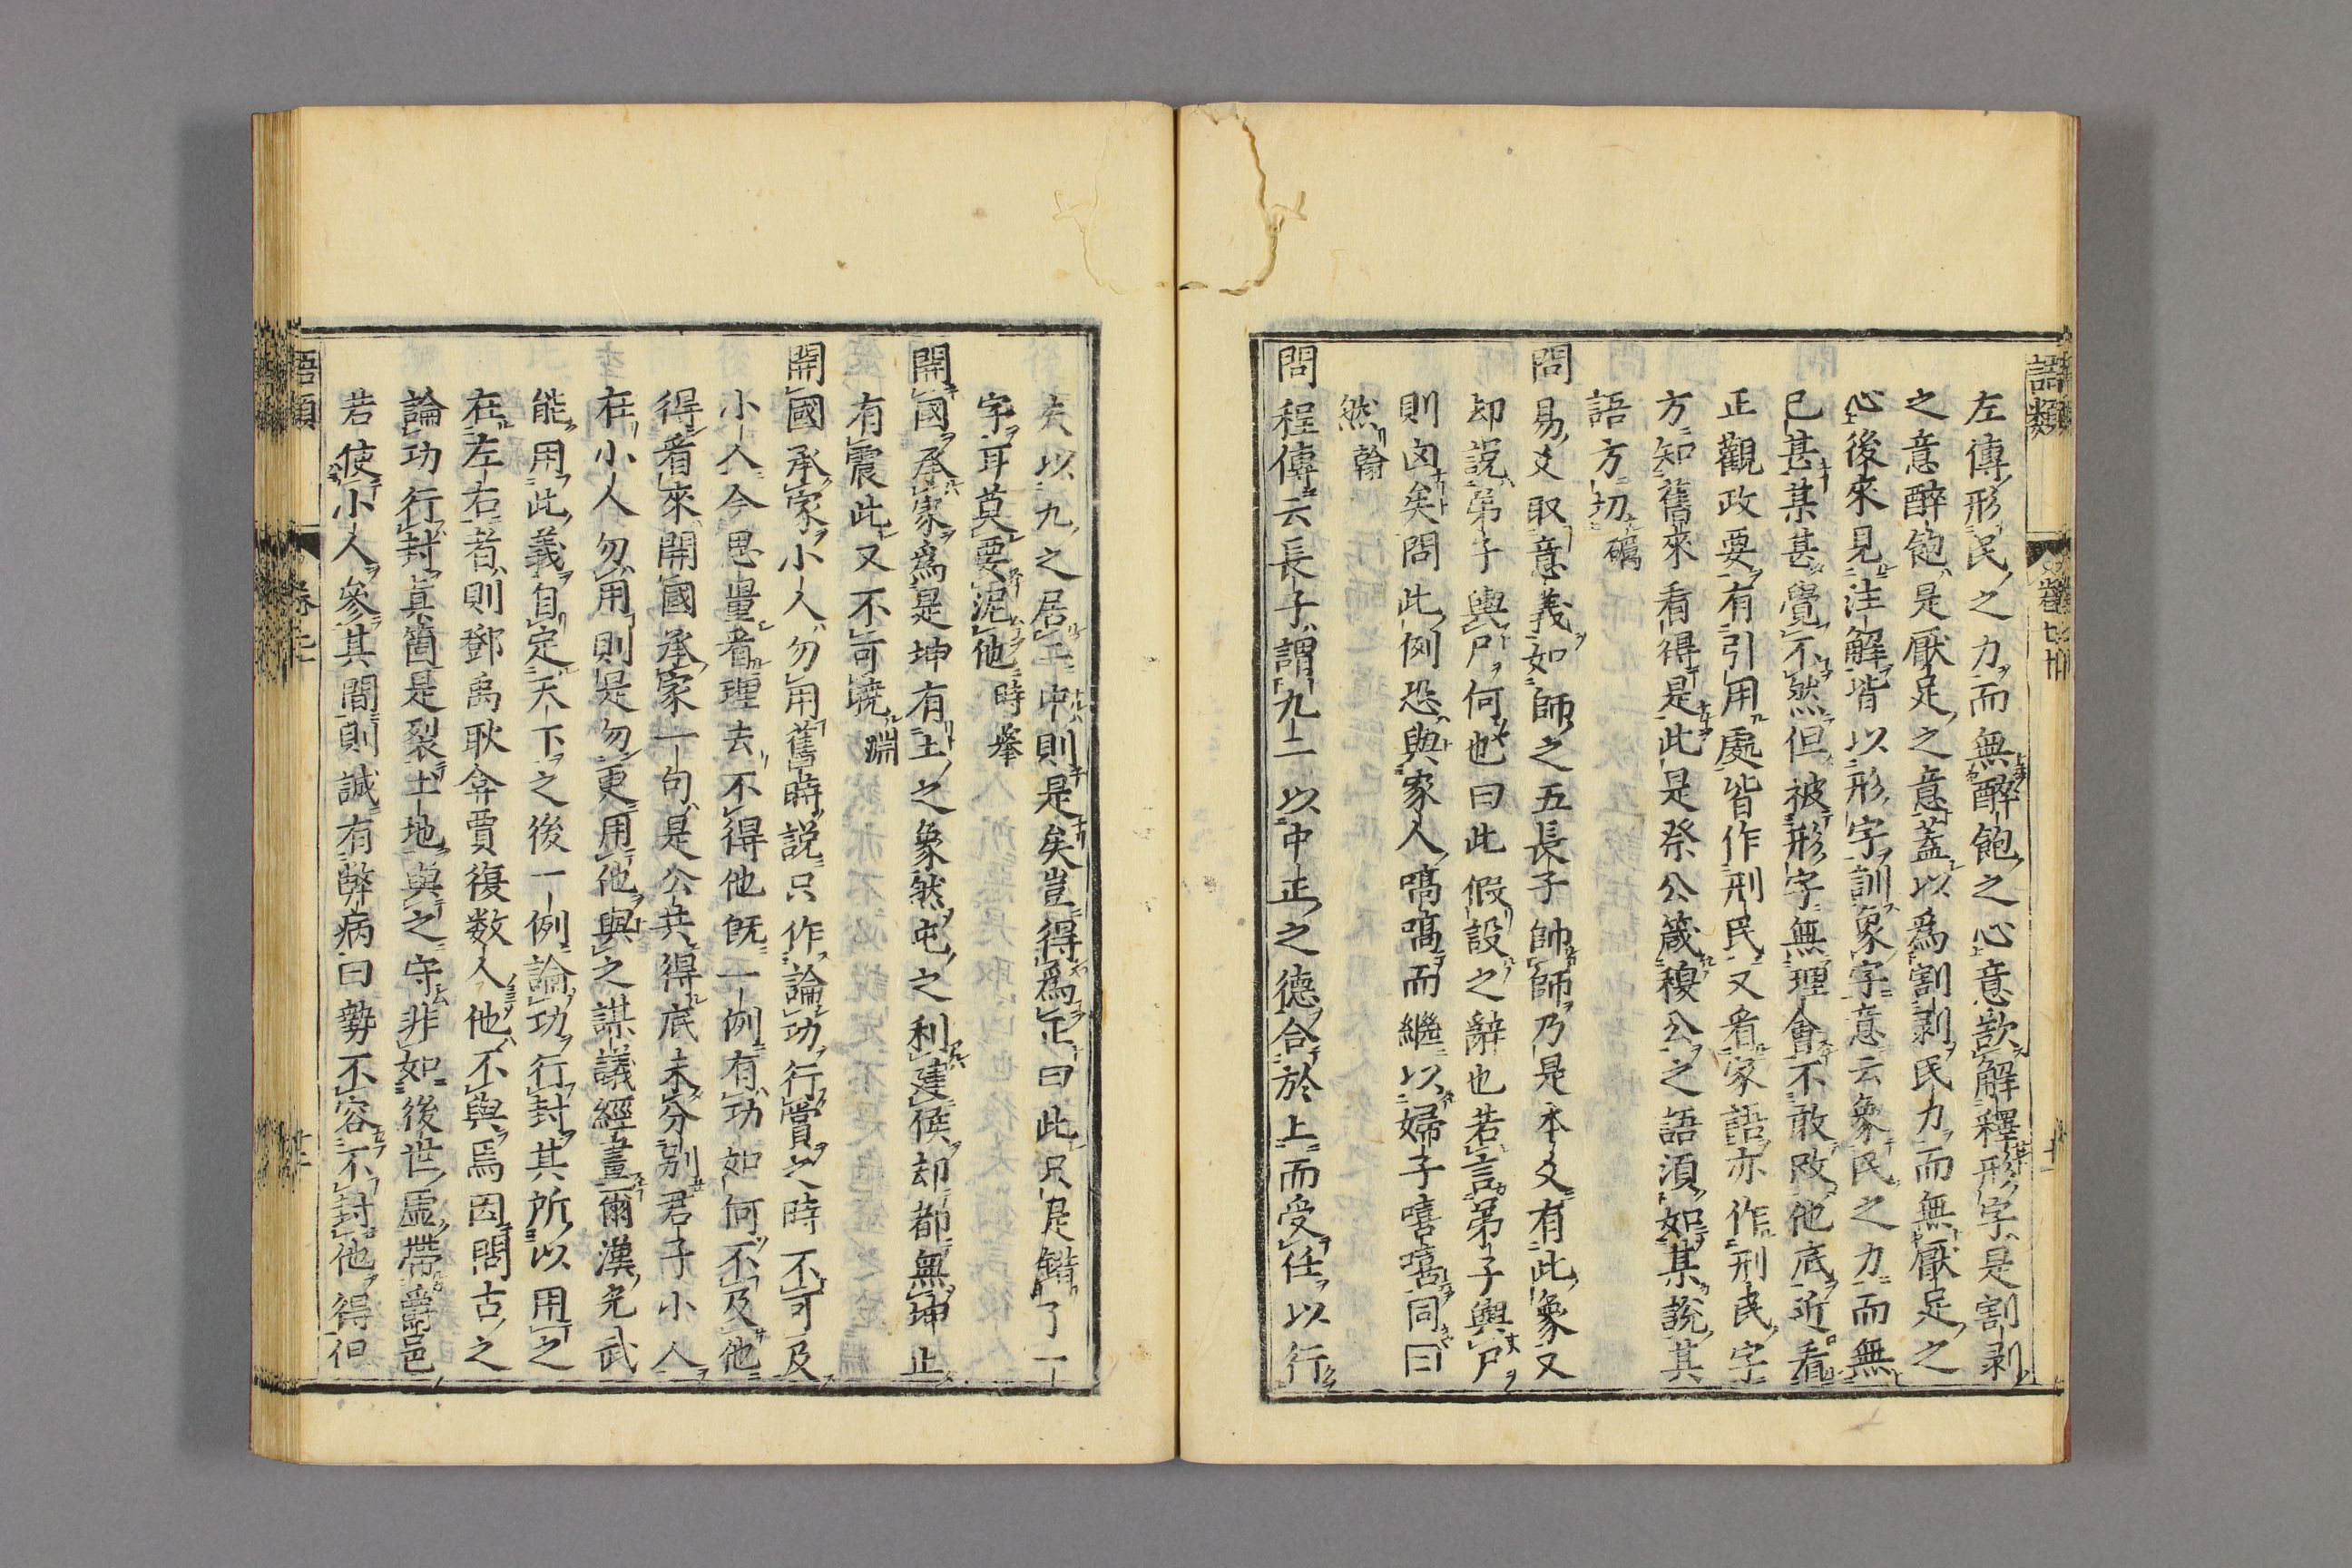 語類
卷七十
十一
左傳形民之力而無醉飽之心意欲解釋形字是割剥
之意醉飽是厭足之意蓋以爲割剥民力而無厭足之
心後來見注解皆以形字訓象字意云象民之力而無
已甚某甚覺不然但被形字無理會不敢改他底近看
正觀政要有引用處皆作刑民又看家語亦作刑民字
方知舊來看得是此是祭公箴穆公之語須如某說其
語方切礪
問易爻取意義如師之五長子帥師乃是本爻有此象又
却說弟子輿尸何也曰此假設之辭也若言弟子輿尸
則凶矣問此例恐與家人嗃嗃而繼以婦子嘻嘻同曰
然翰
問程傳云長子謂九二以中正之德合於上而受任以行
夫以九之居二中則是矣豈得爲正曰此只是錯了一
字耳莫要泥他時舉
開國承家爲是坤有土之象然屯之利建侯却都無坤止
有震此又不可曉淵
開國承家小人勿用舊時說只作論功行賞之時不可及
小人今思量看理去不得他既一例有功如何不及他
得看來開國承家一句是公共得底未分别君子小人
在小人勿用則是勿更用他與之謀議經畫爾漢光武
能用此義自定天下之後一例論功行封其所以用之
在左右者則鄧禹耿弇賈復数人他不與焉因問古之
論功行封真箇是裂土地與之守非如後世虛帶爵邑
若使小人參其間則誠有弊病曰勢不容不封他得但
語類
卷七十
十二